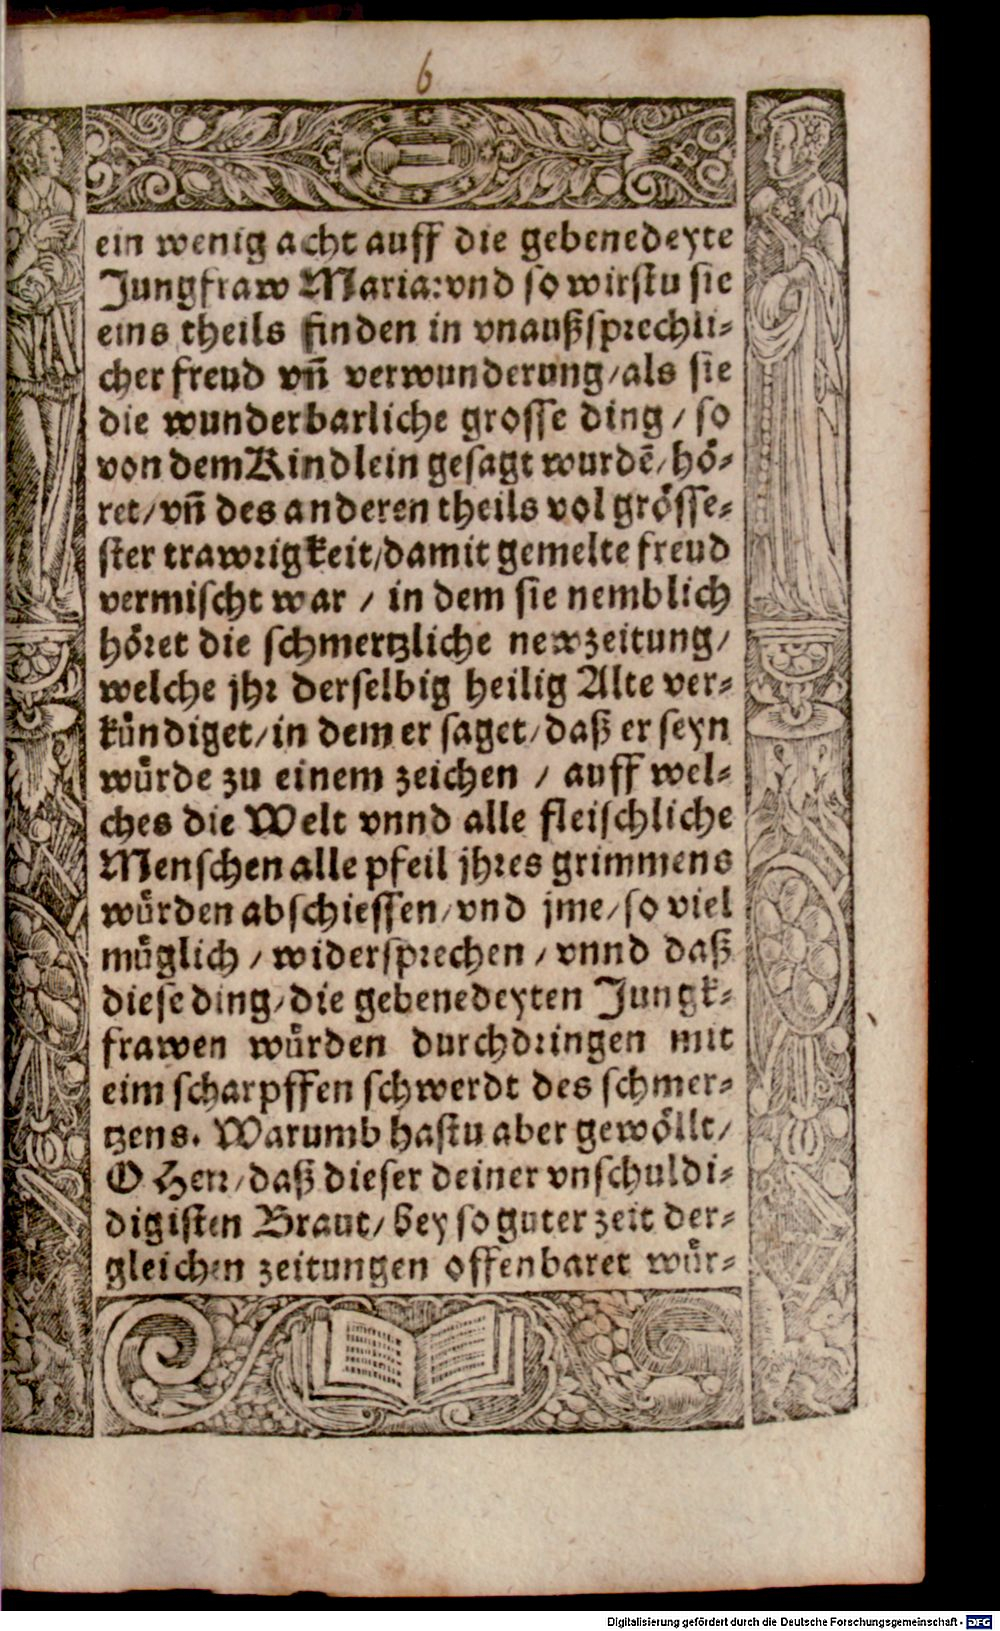 6
ein wenig acht auff die gebenedeyte
Jungfraw Maria: vnd so wirstu sie
eins theils finden in vnaußsprechli⸗
cher freud vñ verwunderung/ als sie
die wunderbarliche grosse ding / so
von dem Kindlein gesagt wurdẽ/ hö⸗
ret/ vñ des anderen theils vol grösse⸗
ster trawrigkeit/ damit gemelte freud
vermischt war / in dem sie nemblich
höret die schmertzliche newzeitung/
welche jhr derselbig heilig Alte ver⸗
kündiget/ in dem er saget/ daß er seyn
würde zu einem zeichen / auff wel⸗
ches die Welt vnnd alle fleischliche
Menschen alle pfeil jhres grimmens
würden abschiessen/ vnd jme/ so viel
müglich / widersprechen / vnnd daß
diese ding/ die gebenedeyten Jungk⸗
frawen würden durchdringen mit
eim scharpffen schwerdt des schmer⸗
tzens. Warumb hastu aber gewöllt/
O Herr/ daß dieser deiner vnschuldi⸗
digisten Braut/ bey so guter zeit der⸗
gleichen zeitungen offenbaret wür⸗
Digitalisierung gefördert durch die Deutsche Forschungsgemeinschaft - DFG